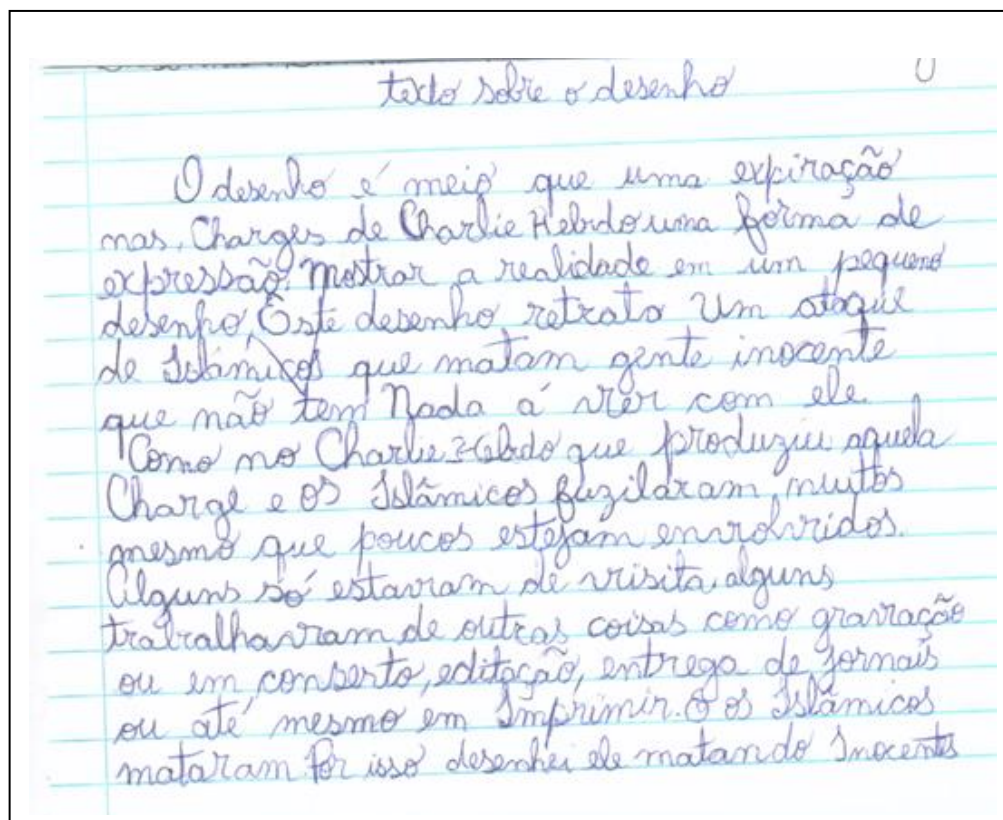 texto sobre o desenho
O desenho é meio que uma expiração
nas, Charges de Charlie Hebdo uma forma de
expressão. Mostrar a realidade em um pequeno
desenho, Este desenho retrata um ataque
de Islâmicos que matam gente inocente
que não tem Nada á ver com ele.
Como no Charlie Hebdo que produziu aquela
Charge e os Islâmicos fuzilaram, muitos
mesmo que poucos estejam envolvidos.
Alguns só estavam de visita, alguns
trabalhavam de outras coisas como gravação
ou em conserto, editação, entrega de jornais
ou até mesmo em Imprimir. E os Islâmicos
mataram Por isso desenhei ele matando Inocentes